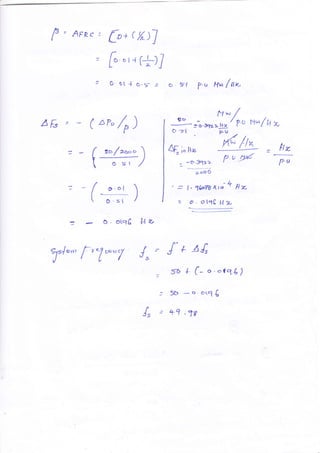 β = AFRC = [D + (1/R)]
= [0.01 + (1/2)]
= 0.01 + 0.5 = 0.51 pu Mw/Hz
ΔFs = - (ΔPD/β)
= - (50/2000 / 0.51)
= - (0.01 / 0.51)
= - 0.0196 Hz
50
0.51
Mw/
pu Mw/Hz
pu
ΔFs in Hz
Mw/Hz
pu
= Hz
pu
= -0.0392
2000
= 1.9608 x 10-4 Hz
= 0.0196 Hz
System frequency fs = f° + Δfs
= 50 + (-0.0196)
= 50 - 0.0196
fs = 49.98